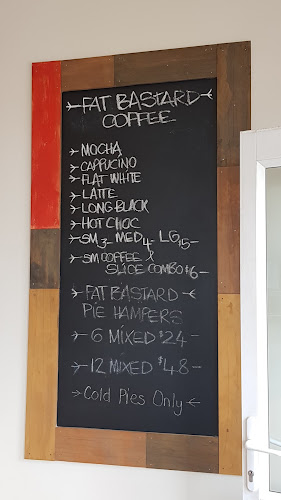 FAT BASTARD
COFFEE
MOCHA
CAPPUCINO
FLAT WHITE
LATTE
LONG BLACK
HOT CHOC
SM 3- MED 4- LG $5-
SM COFFEE &
SLICE COMBO $6-
FAT BASTARD
PIE HAMPERS
6 MIXED $24-
12 MIXED $48-
Cold Pies Only